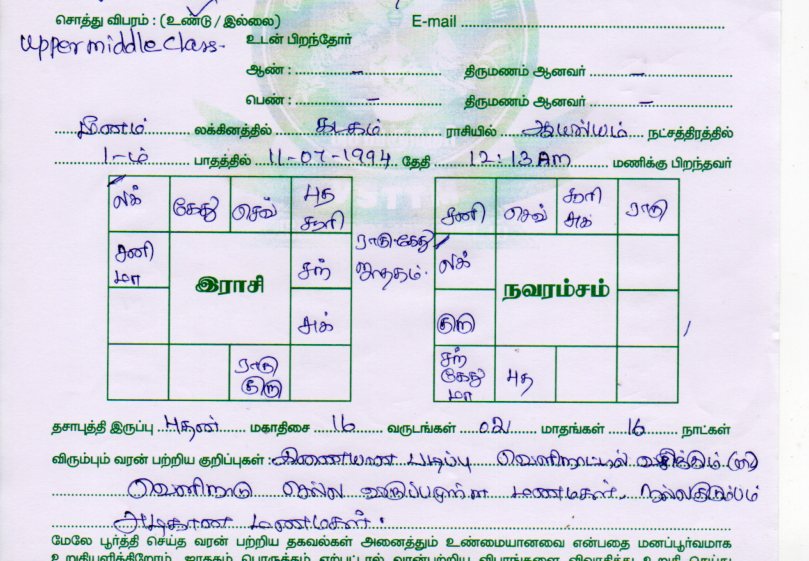 சொத்து விபரம் : (உண்டு / இல்லை) E-mail
Upper middle Class.
உடன் பிறந்தோர்
ஆண் : – திருமணம் ஆனவர் –
பெண் : – திருமணம் ஆனவர் –
மீனம் லக்கினத்தில் கடகம் ராசியில் ஆயில்யம் நட்சத்திரத்தில்
1-ம் பாதத்தில் 11-07-1994 தேதி 12:13 Am மணிக்கு பிறந்தவர்
லக் கேது செவ் புத சூரி
சனி மா இராசி சந்
சுக்
ராகு குரு
ராகு-கேது ஜாதகம்.
சனி செவ் சூரி சுக் ராகு
லக் நவரம்சம்
குரு
சந் கேது மா புத
தசாபுத்தி இருப்பு புதன் மகாதிசை 16 வருடங்கள் 02 மாதங்கள் 16 நாட்கள்
விரும்பும் வரன் பற்றிய குறிப்புகள் : இணையான படிப்பு வெளிநாட்டில் வசிக்கும் (or)
வெளிநாடு செல்ல விருப்பமுள்ள மணமகள். நல்லகுடும்பம்
அழகான மணமகள்.
மேலே பூர்த்தி செய்த வரன் பற்றிய தகவல்கள் அனைத்தும் உண்மையானவை என்பதை மனப்பூர்வமாக
உறுதியளிக்கிறோம். ஜாதகம் பொருத்தம் ஏற்பட்டால் வரன்பற்றிய விபரங்களை விவாதித்து உறுதி செய்து